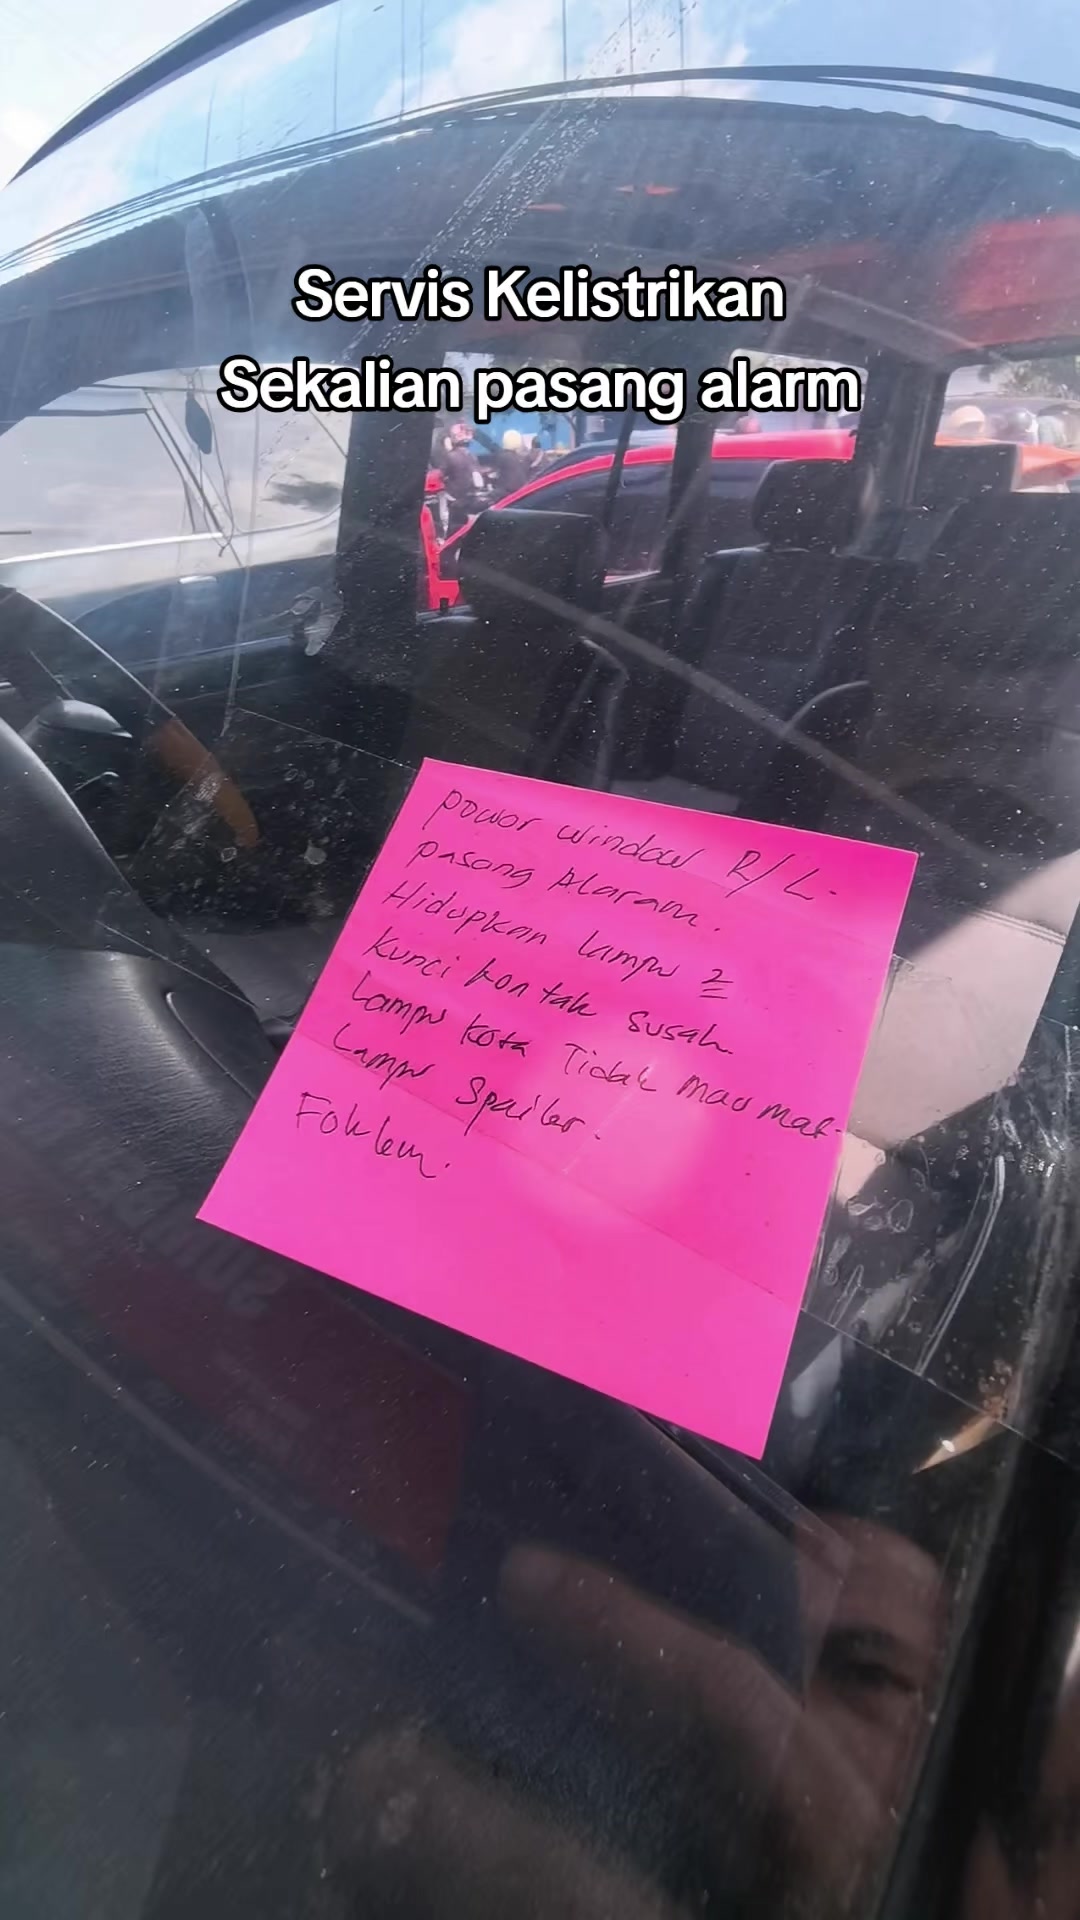 Servis Kelistrikan
Sekalian pasang alarm
power window R/L.
pasang Alaram.
Hidupkan lampu 2
kunci kontak susah.
Lampu kota Tidak mau mat.
Lampu Spailer.
Foklem.